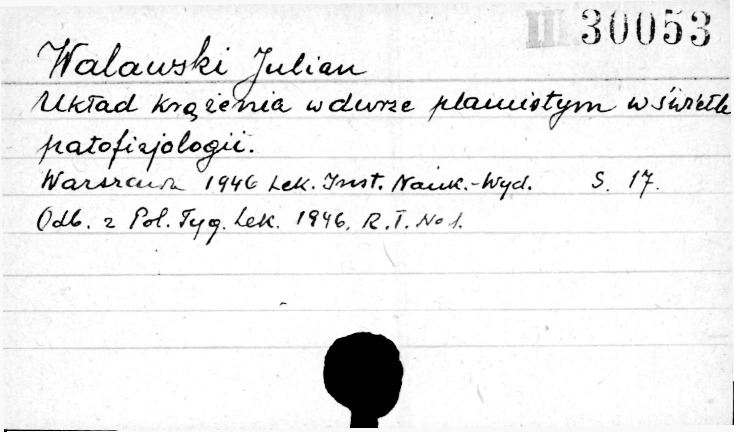 III 30053
Walawski Julian
Układ krążenia w durze plamistym w świetle
patofizjologii.
Warszawa 1946 Lek. Inst. Nauk.-Wyd. S. 17.
Odb. z Pol. Tyg. Lek. 1946. R. I. No 1.